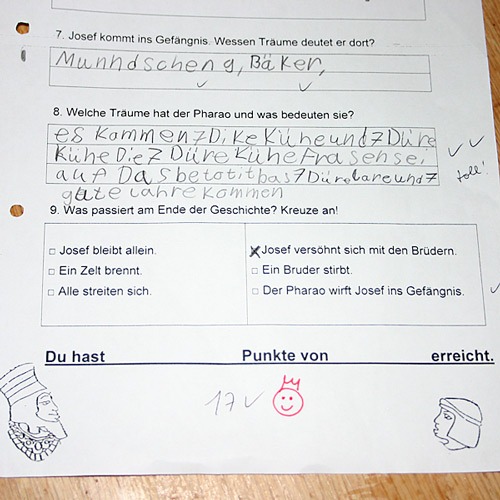 7. Josef kommt ins Gefängnis. Wessen Träume deutet er dort?
Munndscheng, Bäker,
8. Welche Träume hat der Pharao und was bedeuten sie?
es kammen 7 Dike Kühe und 7 Düre
Kühe Die 7 Düre Kühe frasensei
auf Das betotit bas 7 Düre Jare und 7
toll!
gute Jahre kommen
9. Was passiert am Ende der Geschichte? Kreuze an!
Josef bleibt allein.
Ein Zelt brennt.
Alle streiten sich.
Josef versöhnt sich mit den Brüdern.
Ein Bruder stirbt.
Der Pharao wirft Josef ins Gefängnis.
Du hast Punkte von erreicht.
17